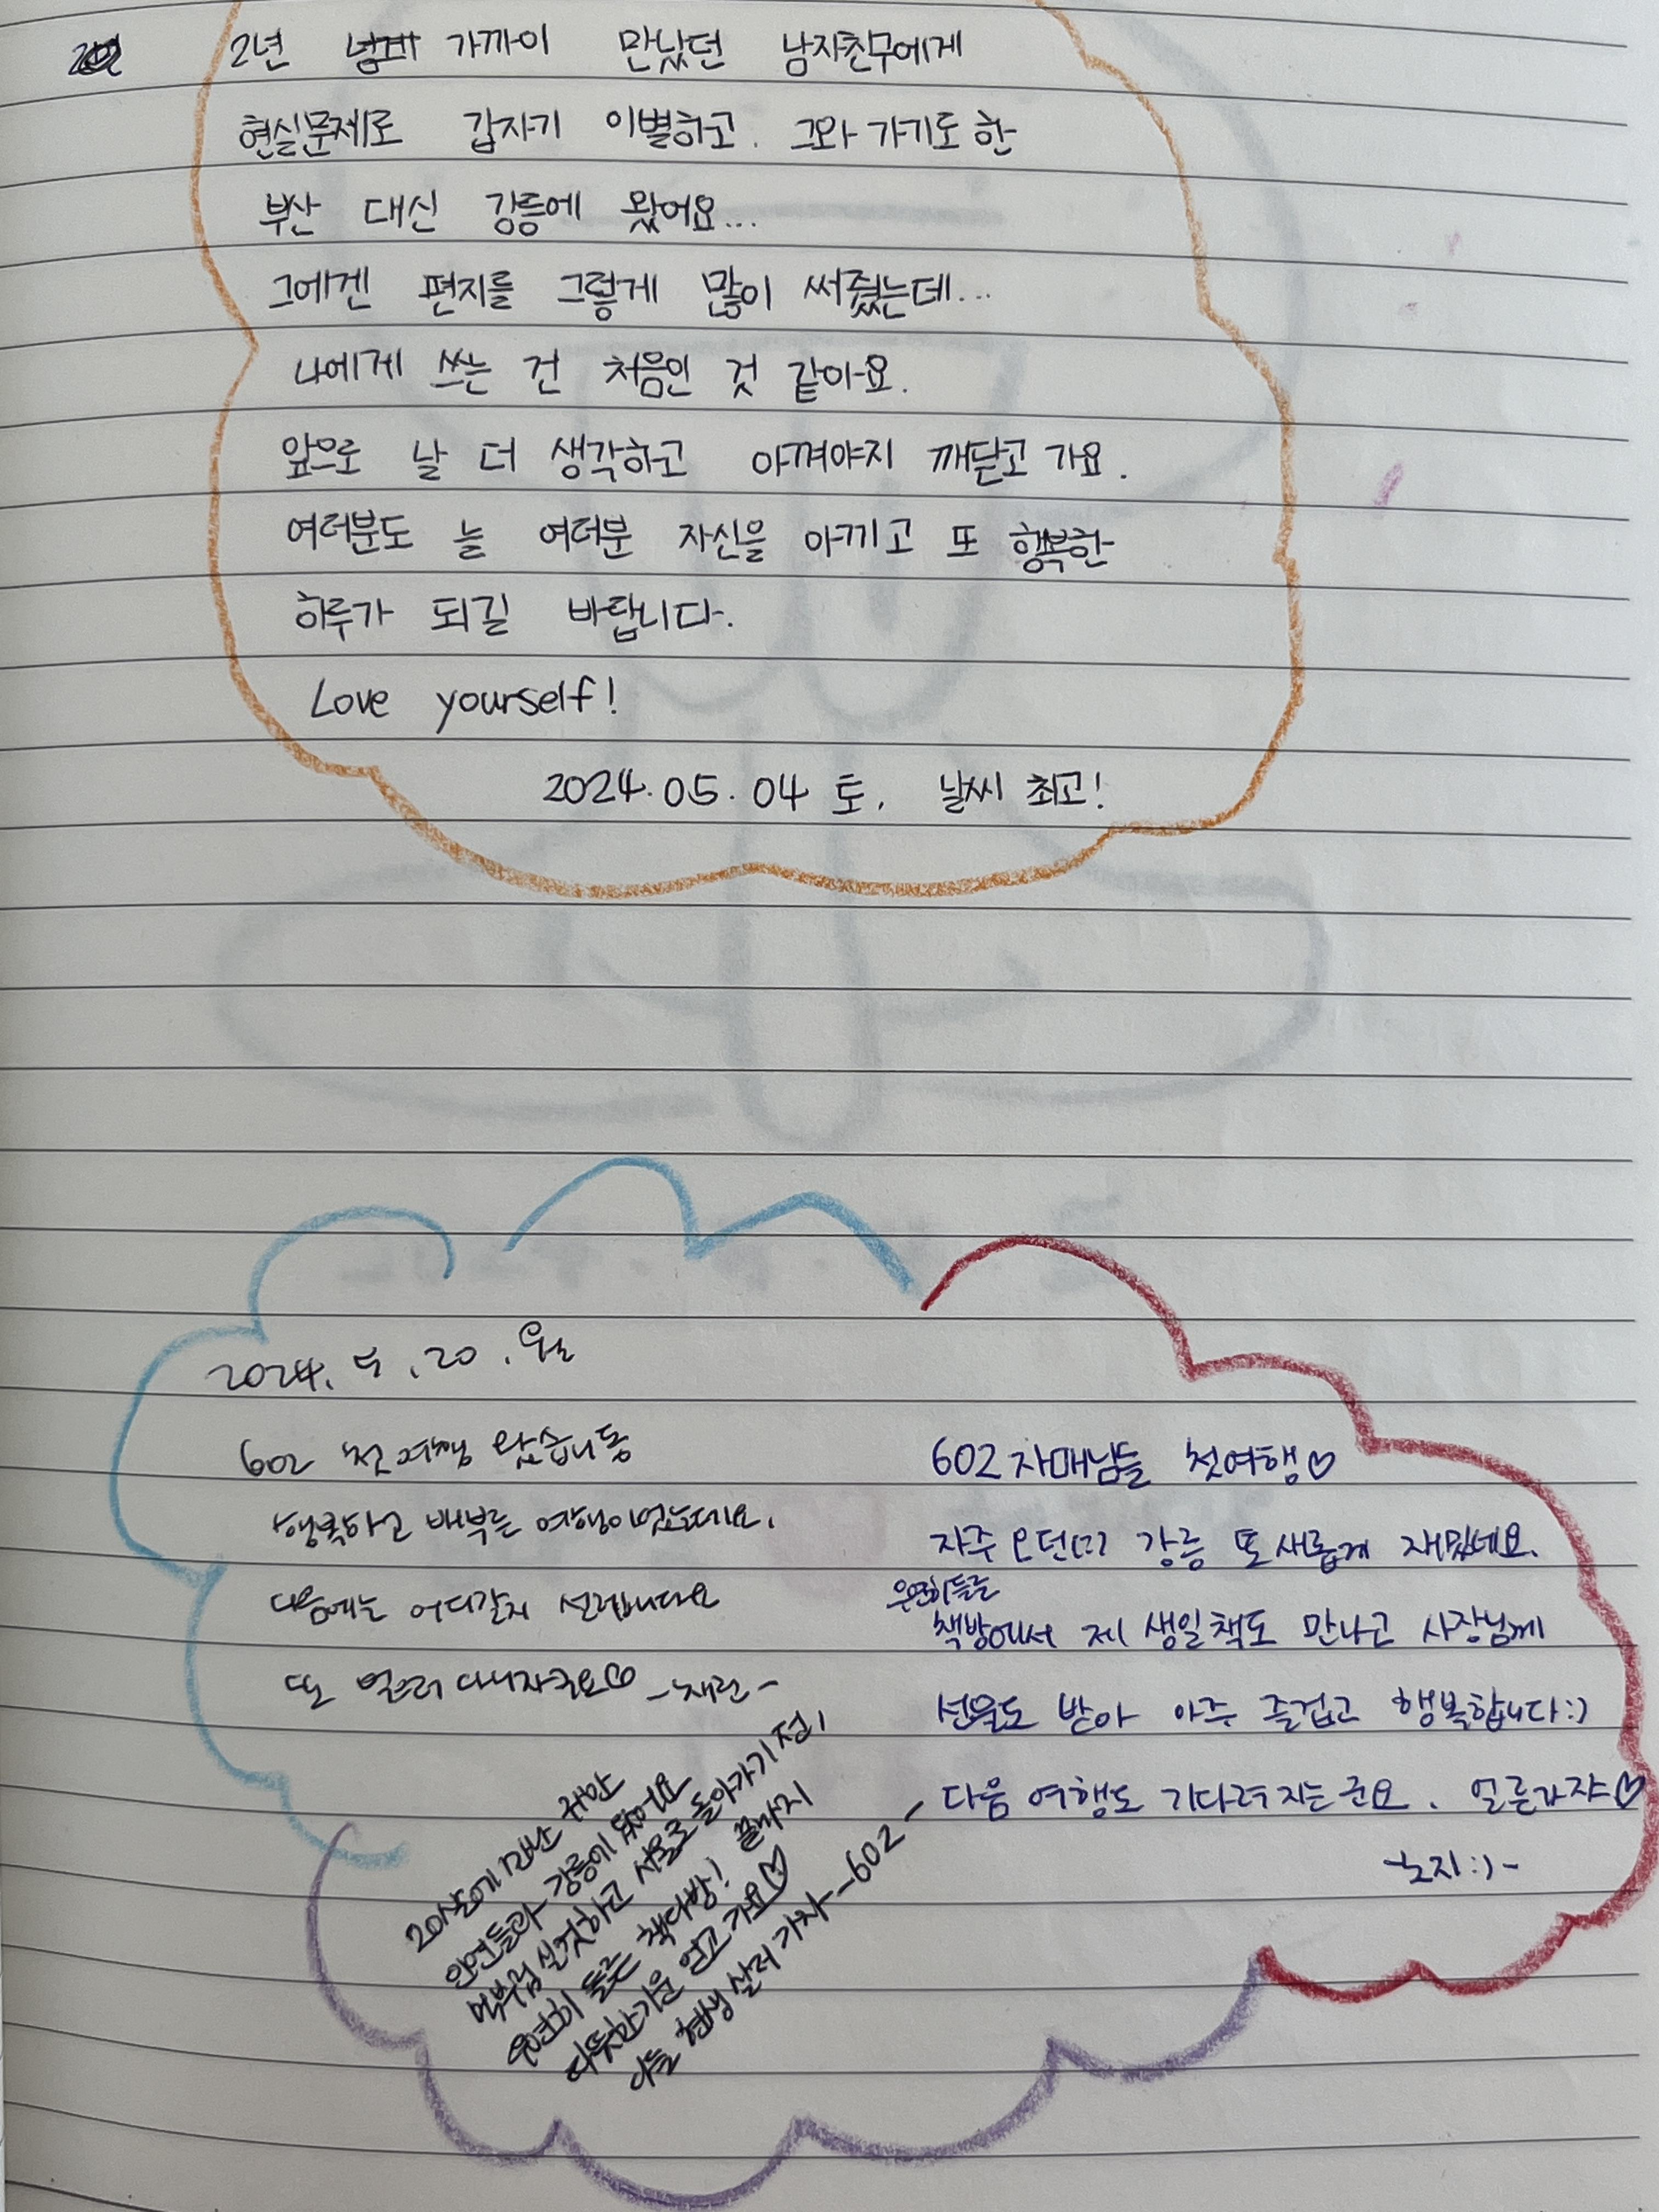 2년 가까이 만났던 남자친구에게
현실문제로 갑자기 이별하고. 그와 가기도 한
부산 대신 강릉에 왔어요...
그에겐 편지를 그렇게 많이 써줬는데...
나에게 쓰는 건 처음인 것 같아요.
앞으로 날 더 생각하고 아껴야지 깨닫고 가요.
여러분도 늘 여러분 자신을 아끼고 또 행복한
하루가 되길 바랍니다.
Love yourself!
2024.05.04 토. 날씨 최고!
2024. 5. 20. 월
602 첫 여행 왔습니동
행복하고 배부른 여행이었는데요.
다음에는 어디갈지 설레입니다요
또 얼른 다니자구요♡ -채란-
20살에 만난 귀한
인연들과 강릉이 왔어요
먹부림 실컷하고 서울로 돌아가기 전,
우연히 들른 책다방! 끝까지
따뜻한 기운 얻고 가요♡
다들 현생 살러 가자- -602-
602 자매님들 첫여행♡
자주 오던(?) 강릉 또 새롭게 재밌네요.
우연히 들른
책방에서 제 생일책도 만나고 사장님께
선물도 받아 아주 즐겁고 행복합니다:)
다음 여행도 기다려지는군요. 얼른가쟈♡